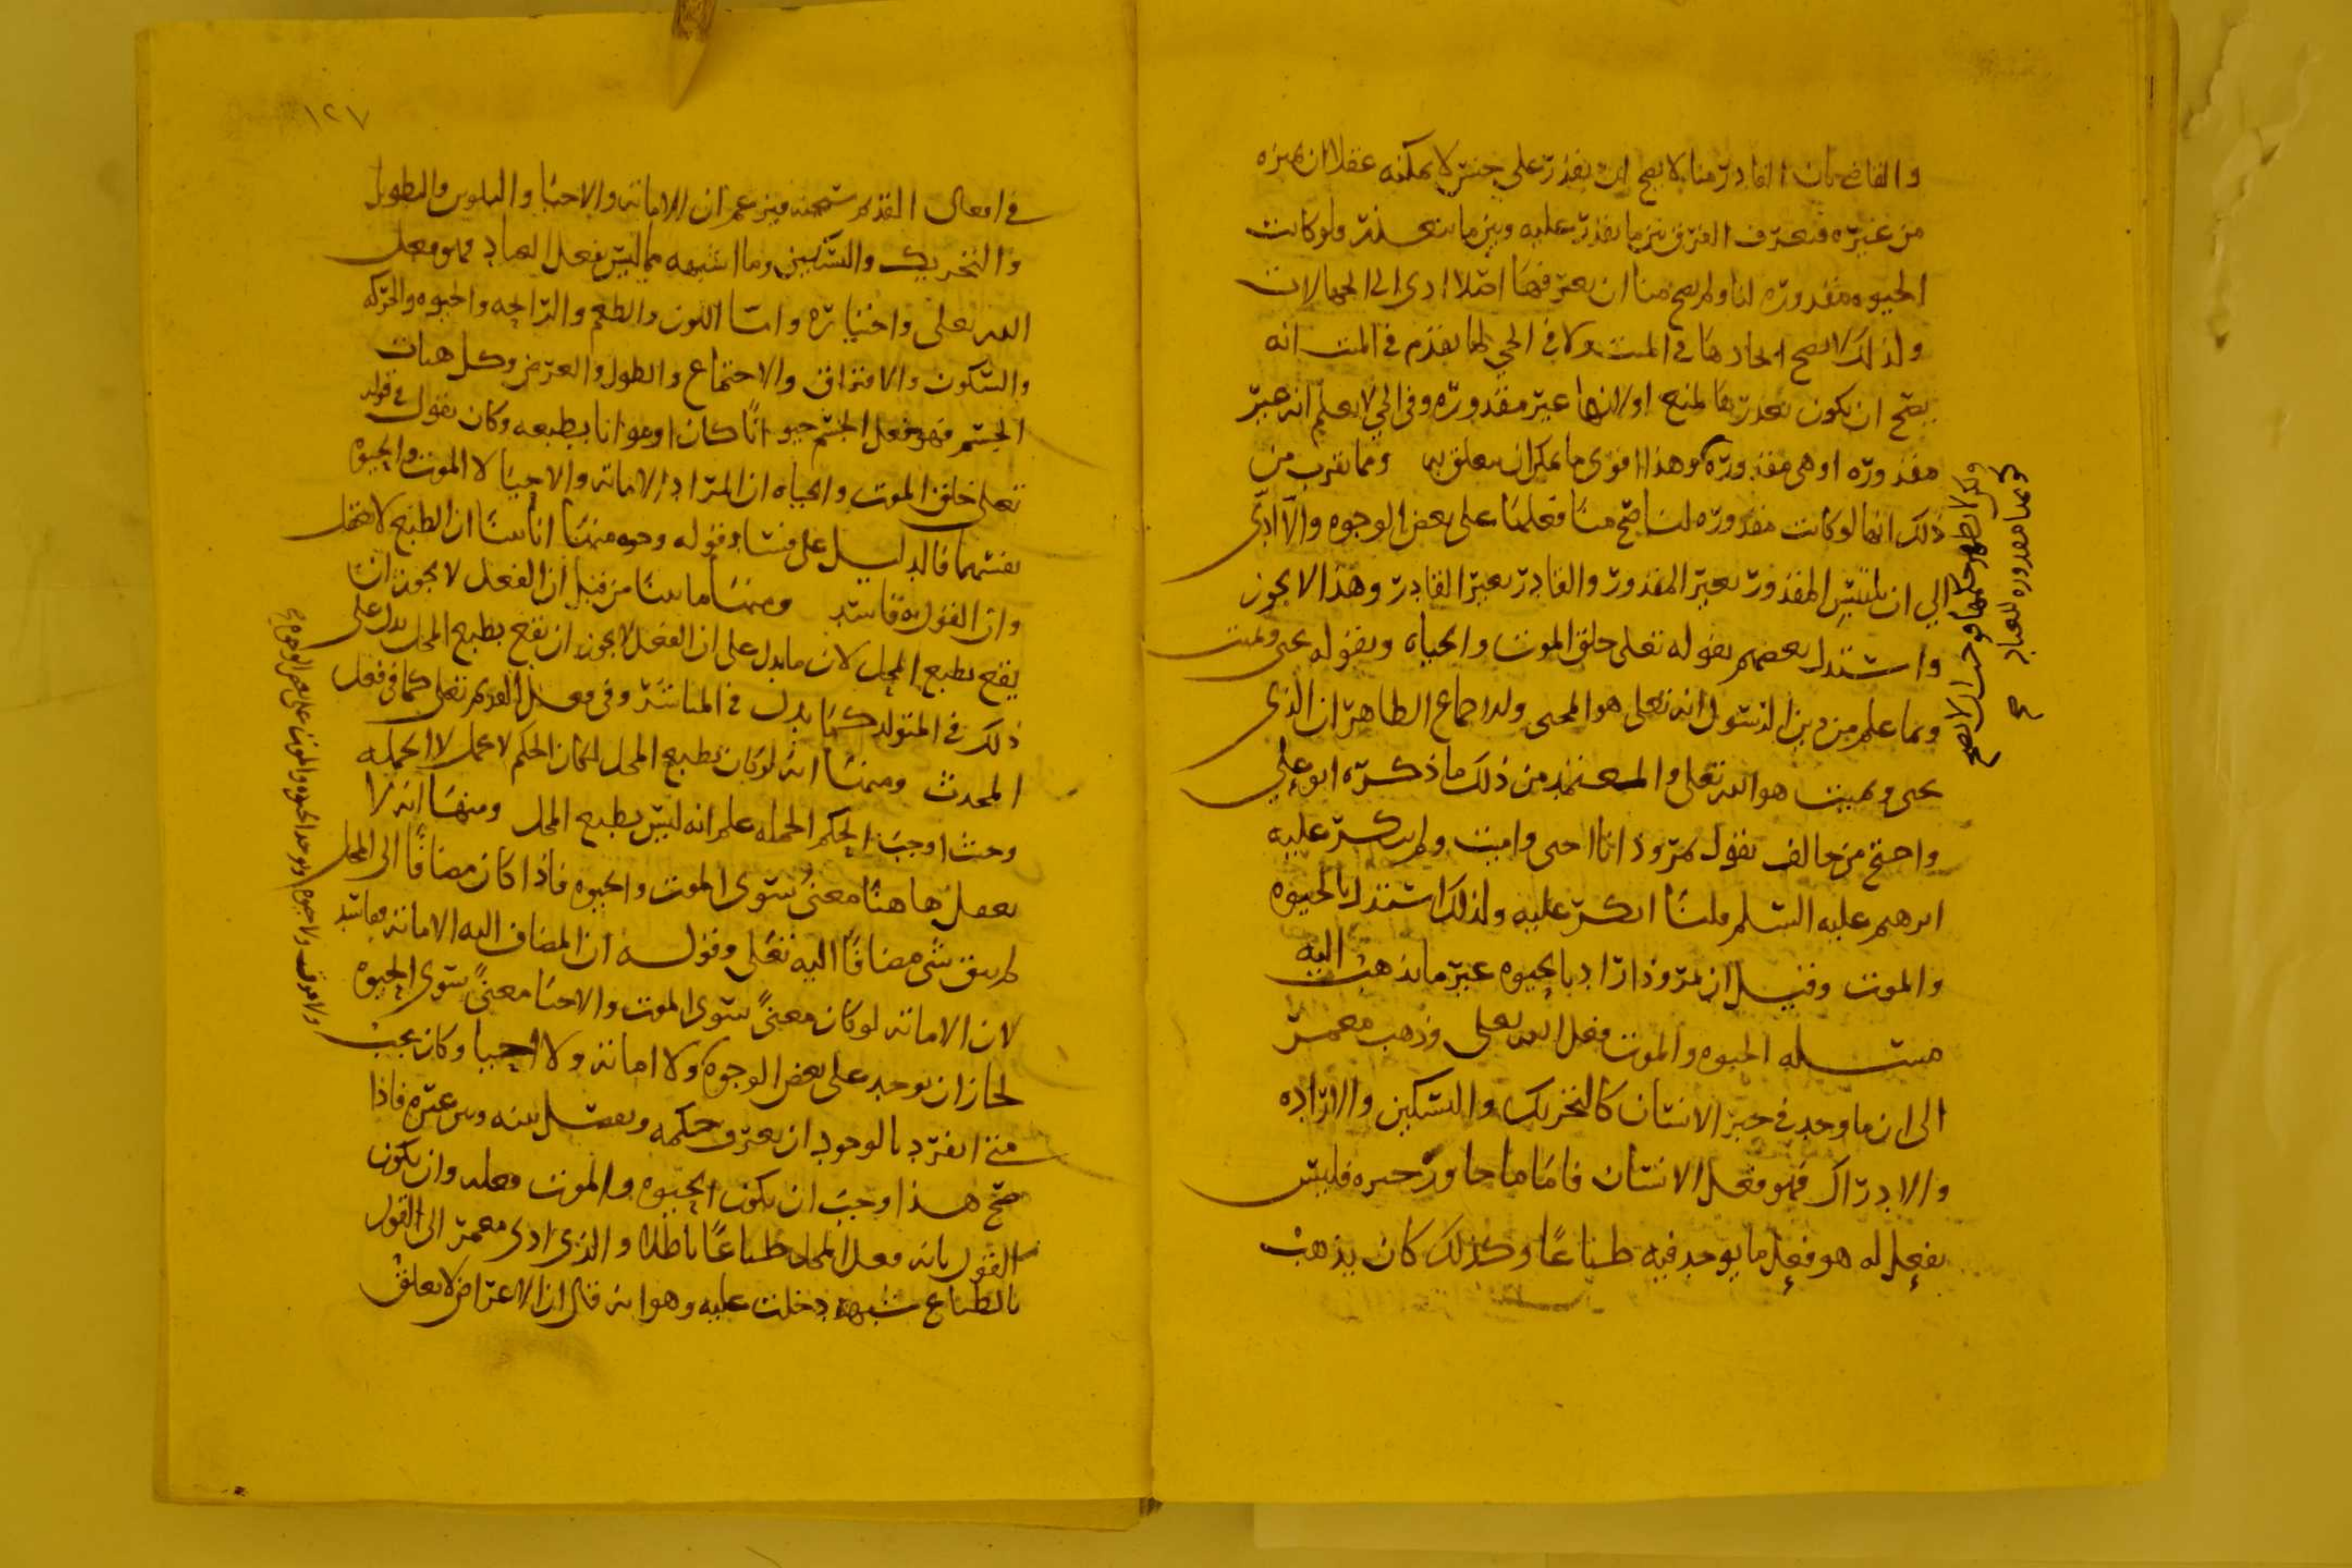 والقاضي بان القادر منا لا يصح ان يقدر على جنس لا يمكنه عقلا ان يميزه
من غيره فيعرف الفرق بين ما يقدر عليه وبين ما يتعذر ولو كانت
الحيوه مقدوره لنا ولم يصح منا ان نعرفها اصلا ادى الى الجهالات
ولذلك لا يصح ايجادها في الميت ولا في الحي لما تقدم في الميت انه
يصح ان يكون تعذرها لمنع او لانها غير مقدوره وفي الحي لا يعلم انه غير
مقدوره او هي مقدوره وهذا اقوى ما يمكن ان يتعلق به ومما يقرب من
ذلك انها لو كانت مقدوره لنا صح منا فعلها على بعض الوجوه والا ادى
الى ان يلتبس المقدور بغير المقدور والقادر بغير القادر وهذا لا يجوز
واستدل بعضهم بقوله تعلى خلق الموت والحياه وبقوله يحيى ويميت
وبما علم من دين الرسول انه تعلى هو المحيي ولاجماع الظاهر ان الذي
يحيى ويميت هو الله تعلى والمعتمد من ذلك ما ذكره ابو علي
واحتج من خالف بقول نمرود انا احيى واميت ولم ينكر عليه
ابرهيم عليه السلم قلنا انكر عليه ولذلك استدل بالحيوه
والموت وقيل ان نمرود اراد بالحيوه غير ما يذهب اليه
مسئله الحيوه والموت فعل الله تعلى وذهب معمر
الى ان ما وجد في حيز الانسان كالتحريك والتسكين والاراده
والادراك فهو فعل الانسان فاما ما جاوز حيزه فليس
بفعل له هو فعل ما يوجد فيه طباعا وكذلك كان يذهب
ولم لا يظهر حكمها فوجب الا يصح
كونها مقدوره للعباد صح
١٢٧
في افعال القديم سبحنه فيزعم ان الاماته والاحيا والتلوين والتطويل
والتحريك والتسكين وما اشبهه مما ليس بفعل العباد فهو فعل
الله تعلى واختياره واما اللون والطعم والرائحه والحيوه والحركه
والسكون والافتراق والاجتماع والطول والعرض وكل هيات
الجسم فهو فعل الجسم حيوانا كان او مواتا بطبعه وكان يقول في قوله
تعلى خلق الموت والحياه ان المراد الاماته والاحيا لا الموت والحيوه
بعينهما فالدليل على فساد قوله وجوه منها انا بينا ان الطبع لا يعقل
وان القول به فاسد ومنها ما بينا من قبل ان الفعل لا يجوز ان
يقع بطبع المحل لان ما يدل على ان الفعل لا يجوز ان يقع بطبع المحل يدل على
ذلك في المتولد كما يدل في المباشر وفي فعل القديم تعلى كما في فعل
المحدث ومنها انه لو كان بطبع المحل لكان الحكم لا محل لا الجمله
وحيث اوجب الحكم الجمله علم انه ليس بطبع المحل ومنها انه لا
يعقل هاهنا معنى سوى الموت والحيوه فاذا كان مضافا الى المحل
لم يبق شي مضافا اليه تعلى وقوله ان المضاف اليه الاماته فاسد
لان الاماته لو كان معنى سوى الموت والاحيا معنى سوى الحيوه
لجاز ان توجد على بعض الوجوه ولا اماته ولا احيا وكان يجب
متى انفرد بالوجود ان يعرف حكمه ويفصل بينه وبين غيره فاذا
صح هذا وجب ان يكون الحيوه والموت فعله وان يكون
القول بانه فعل المحل طباعا باطلا والذي ادى معمر الى القول
بالطباع شبهه دخلت عليه وهو انه قال ان الاعراض لا يعلق
ولا موت ولا حيوه ويوجد الحيوه والموت على بعض الوجوه صح